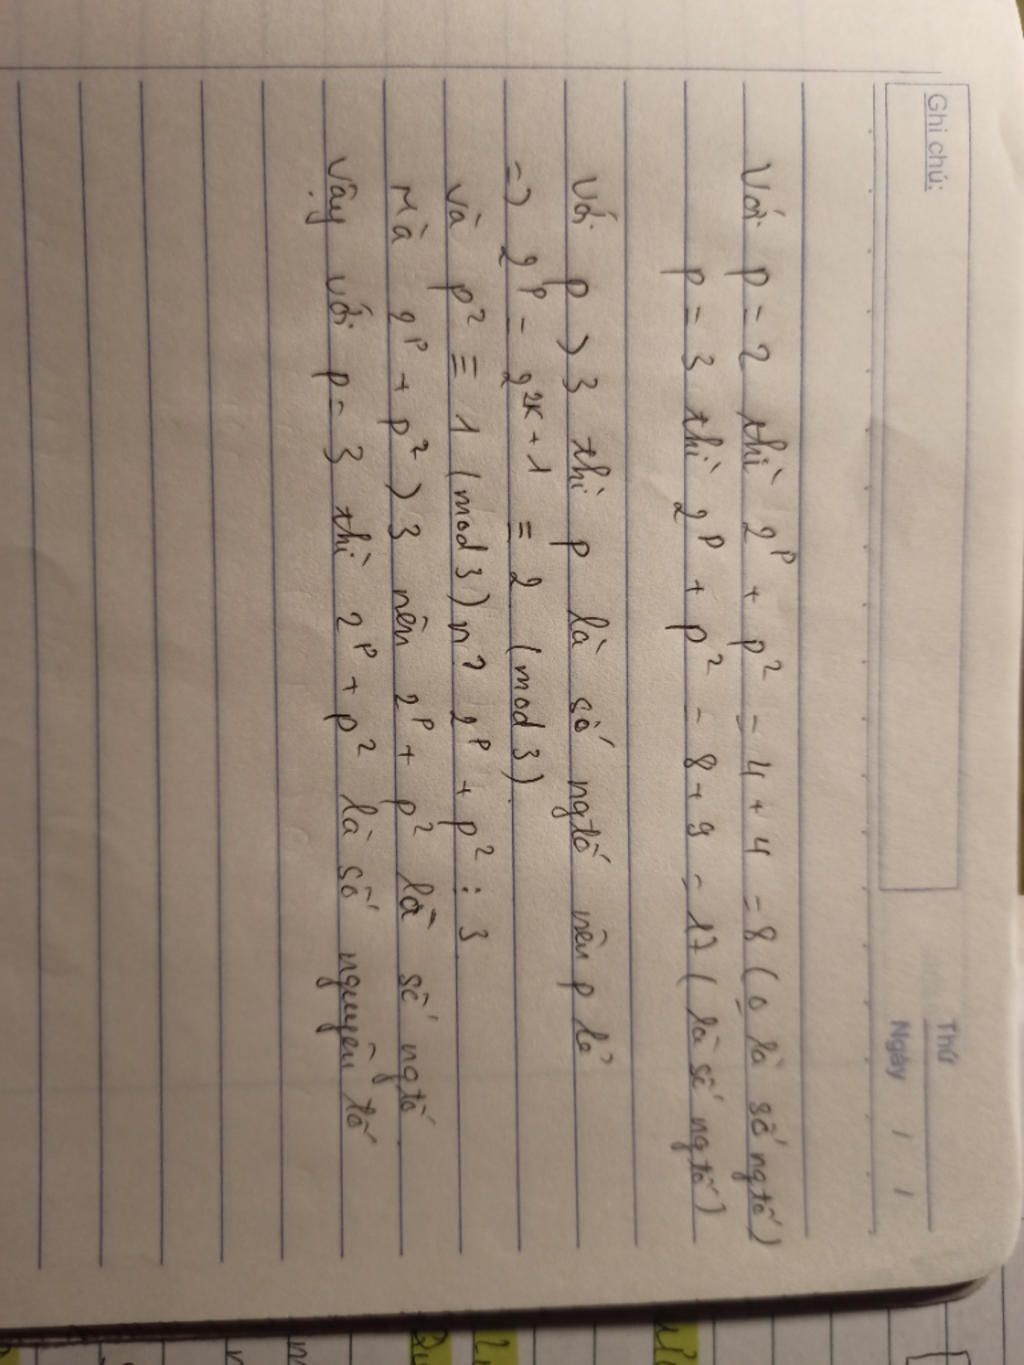 Ghi chú:
Thứ
Ngày / /
Với p = 2 thì 2^p + p² = 4 + 4 = 8 (o là số ngtố)
p = 3 thì 2^p + p² = 8 + 9 = 17 (là số ngtố)
Với p > 3 thì p là số ngtố nên p lẻ
=> 2^p = 2^{2K+1} ≡ 2 (mod 3).
và p² ≡ 1 (mod 3) 2^p + p² ⋮ 3
Mà 2^p + p² > 3 nên 2^p + p² là số ngtố.
Vậy với p = 3 thì 2^p + p² là số nguyên tố